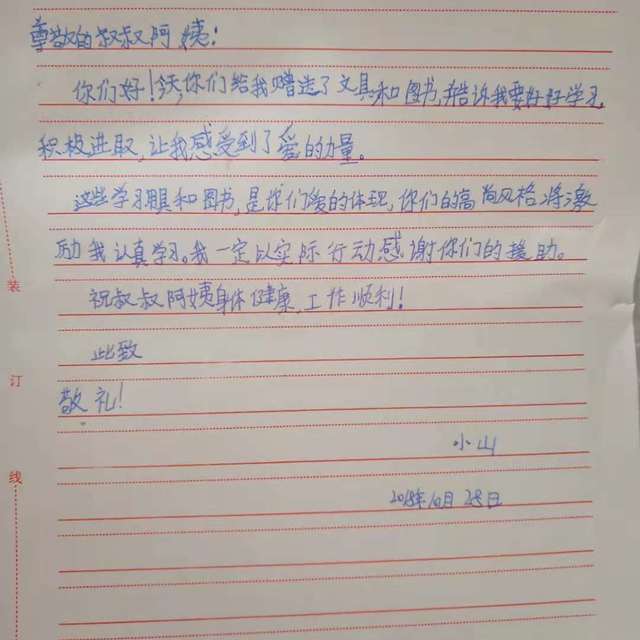 尊敬的叔叔阿姨：
你们好！今天你们给我赠送了文具和图书，并告诉我要好好学习，
积极进取，让我感受到了爱的力量。
这些学习用具和图书，是你们爱的体现，你们的高尚风格将激
励我认真学习。我一定以实际行动感谢你们的援助。
祝叔叔阿姨身体健康，工作顺利！
此致
敬礼！
小山
2018年10月28日
装
订
线